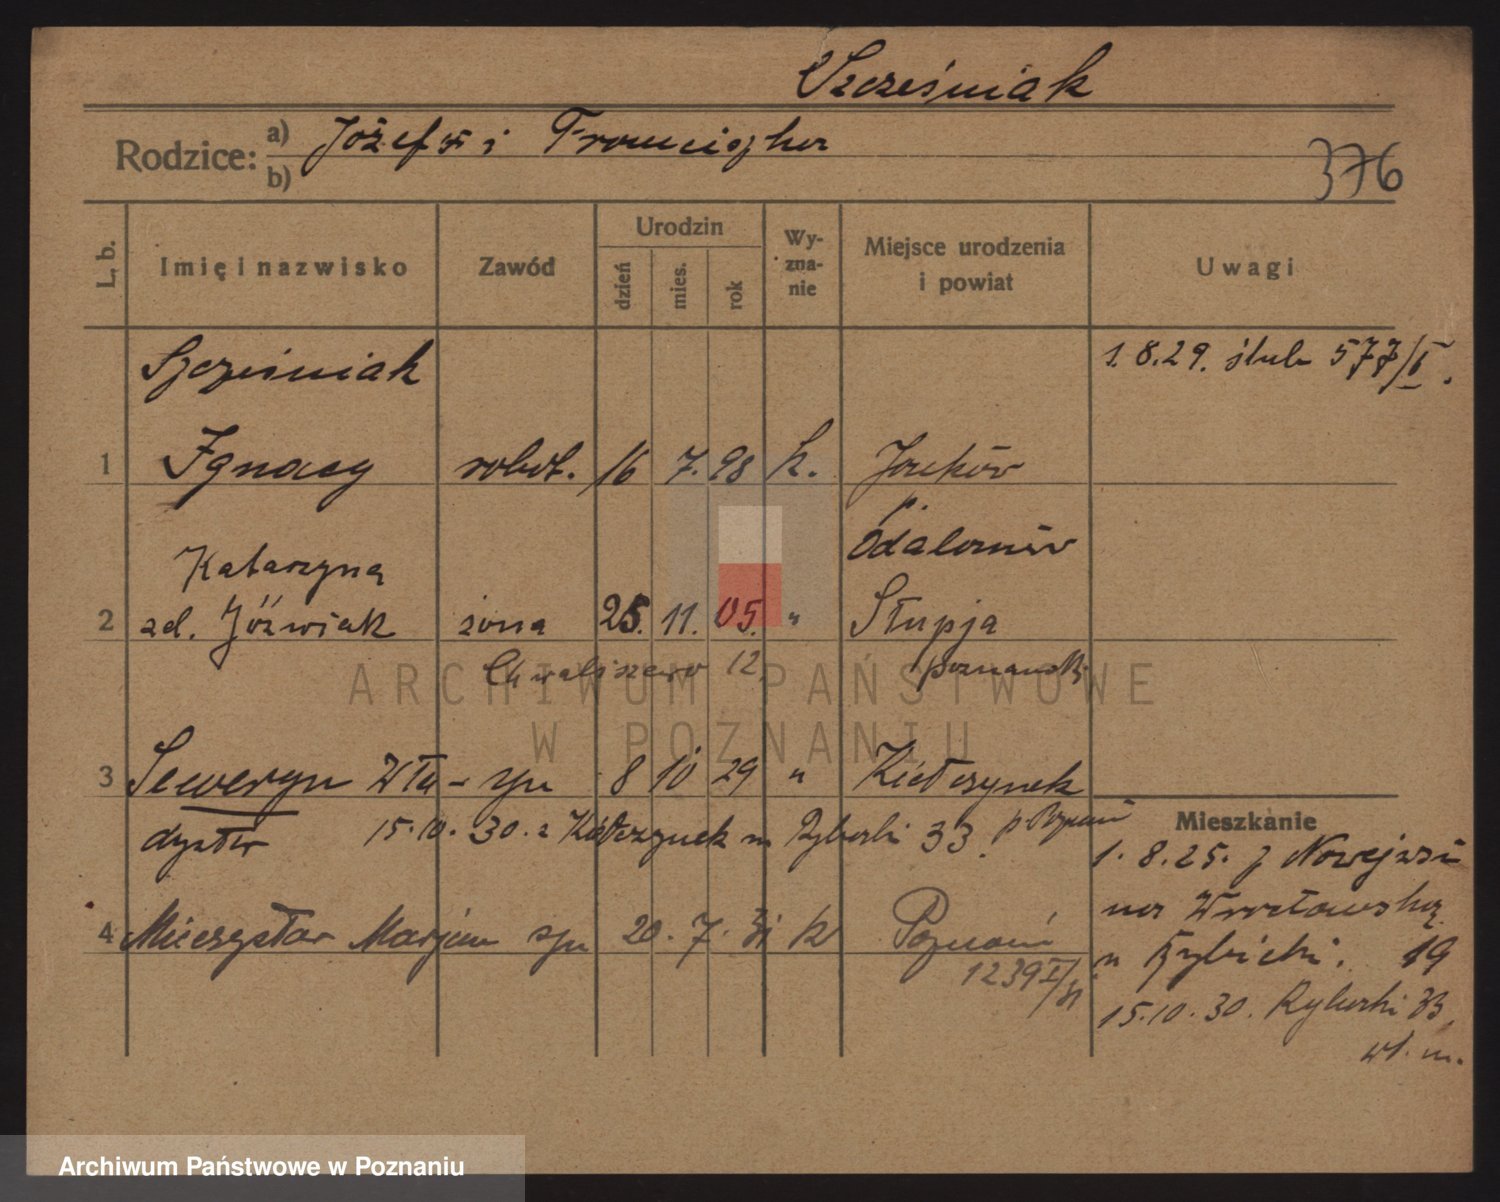 Szcześniak
Rodzice: a) Józef i Franciszka
b)
376
L. b.
Imię i nazwisko
Zawód
Urodzin
dzień
mies.
rok
Wy-
zna-
nie
Miejsce urodzenia
i powiat
Uwagi
Szcześniak
1. 8. 29. ślub 577/
1 Ignacy robot. 16 7. 98 k.
p.
Odalanów
Katarzyna
2 zd. Jóźwiak żona 25. 11. 05. " Słupja
Chwaliszewo 12, poznański
3 Seweryn Wła- syn 8 10 29 " Kiełczynek
dysław 15. 10. 30. z Kiełczynek 33.
Mieszkanie
1. 8. 25. z
Wrocławską
19
4 Mieczysław Marjan syn 20. 7. 31 k Poznań
1239 I/31
15. 10. 30. 33
wł. m.
ARCHIWUM PAŃSTWOWE
W POZNANIU
Archiwum Państwowe w Poznaniu